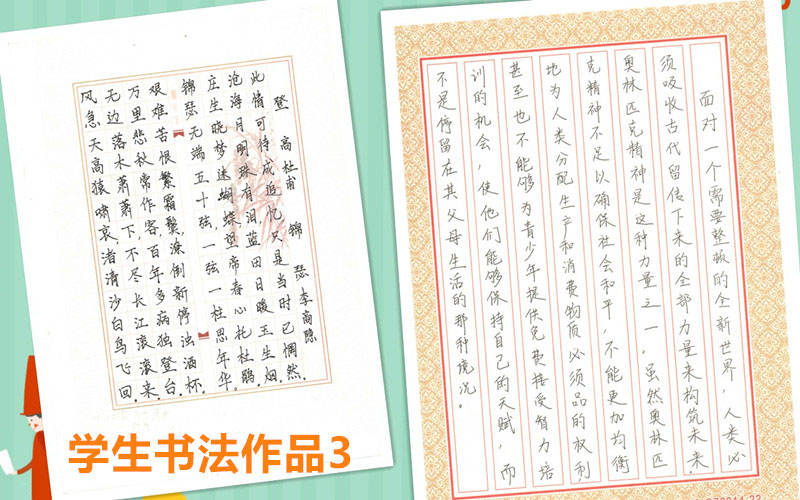 登高 杜甫
锦瑟 李商隐
风急天高猿啸哀，渚清沙白鸟飞回。
无边落木萧萧下，不尽长江滚滚来。
万里悲秋常作客，百年多病独登台。
艰难苦恨繁霜鬓，潦倒新停浊酒杯。
锦瑟无端五十弦，一弦一柱思年华。
庄生晓梦迷蝴蝶，望帝春心托杜鹃。
沧海月明珠有泪，蓝田日暖玉生烟。
此情可待成追忆，只是当时已惘然。
面对一个需要整顿的全新世界，人类必
须吸收古代留传下来的全部力量来构筑未来，
奥林匹克精神是这种力量之一。虽然奥林匹
克精神不足以确保社会和平，不能更加均衡
地为人类分配生产和消费物质必须品的权利，
甚至也不能够为青少年提供免费接受智力培
训的机会，使他们能够保持自己的天赋，而
不是停留在其父母生活的那种境况。
学生书法作品3